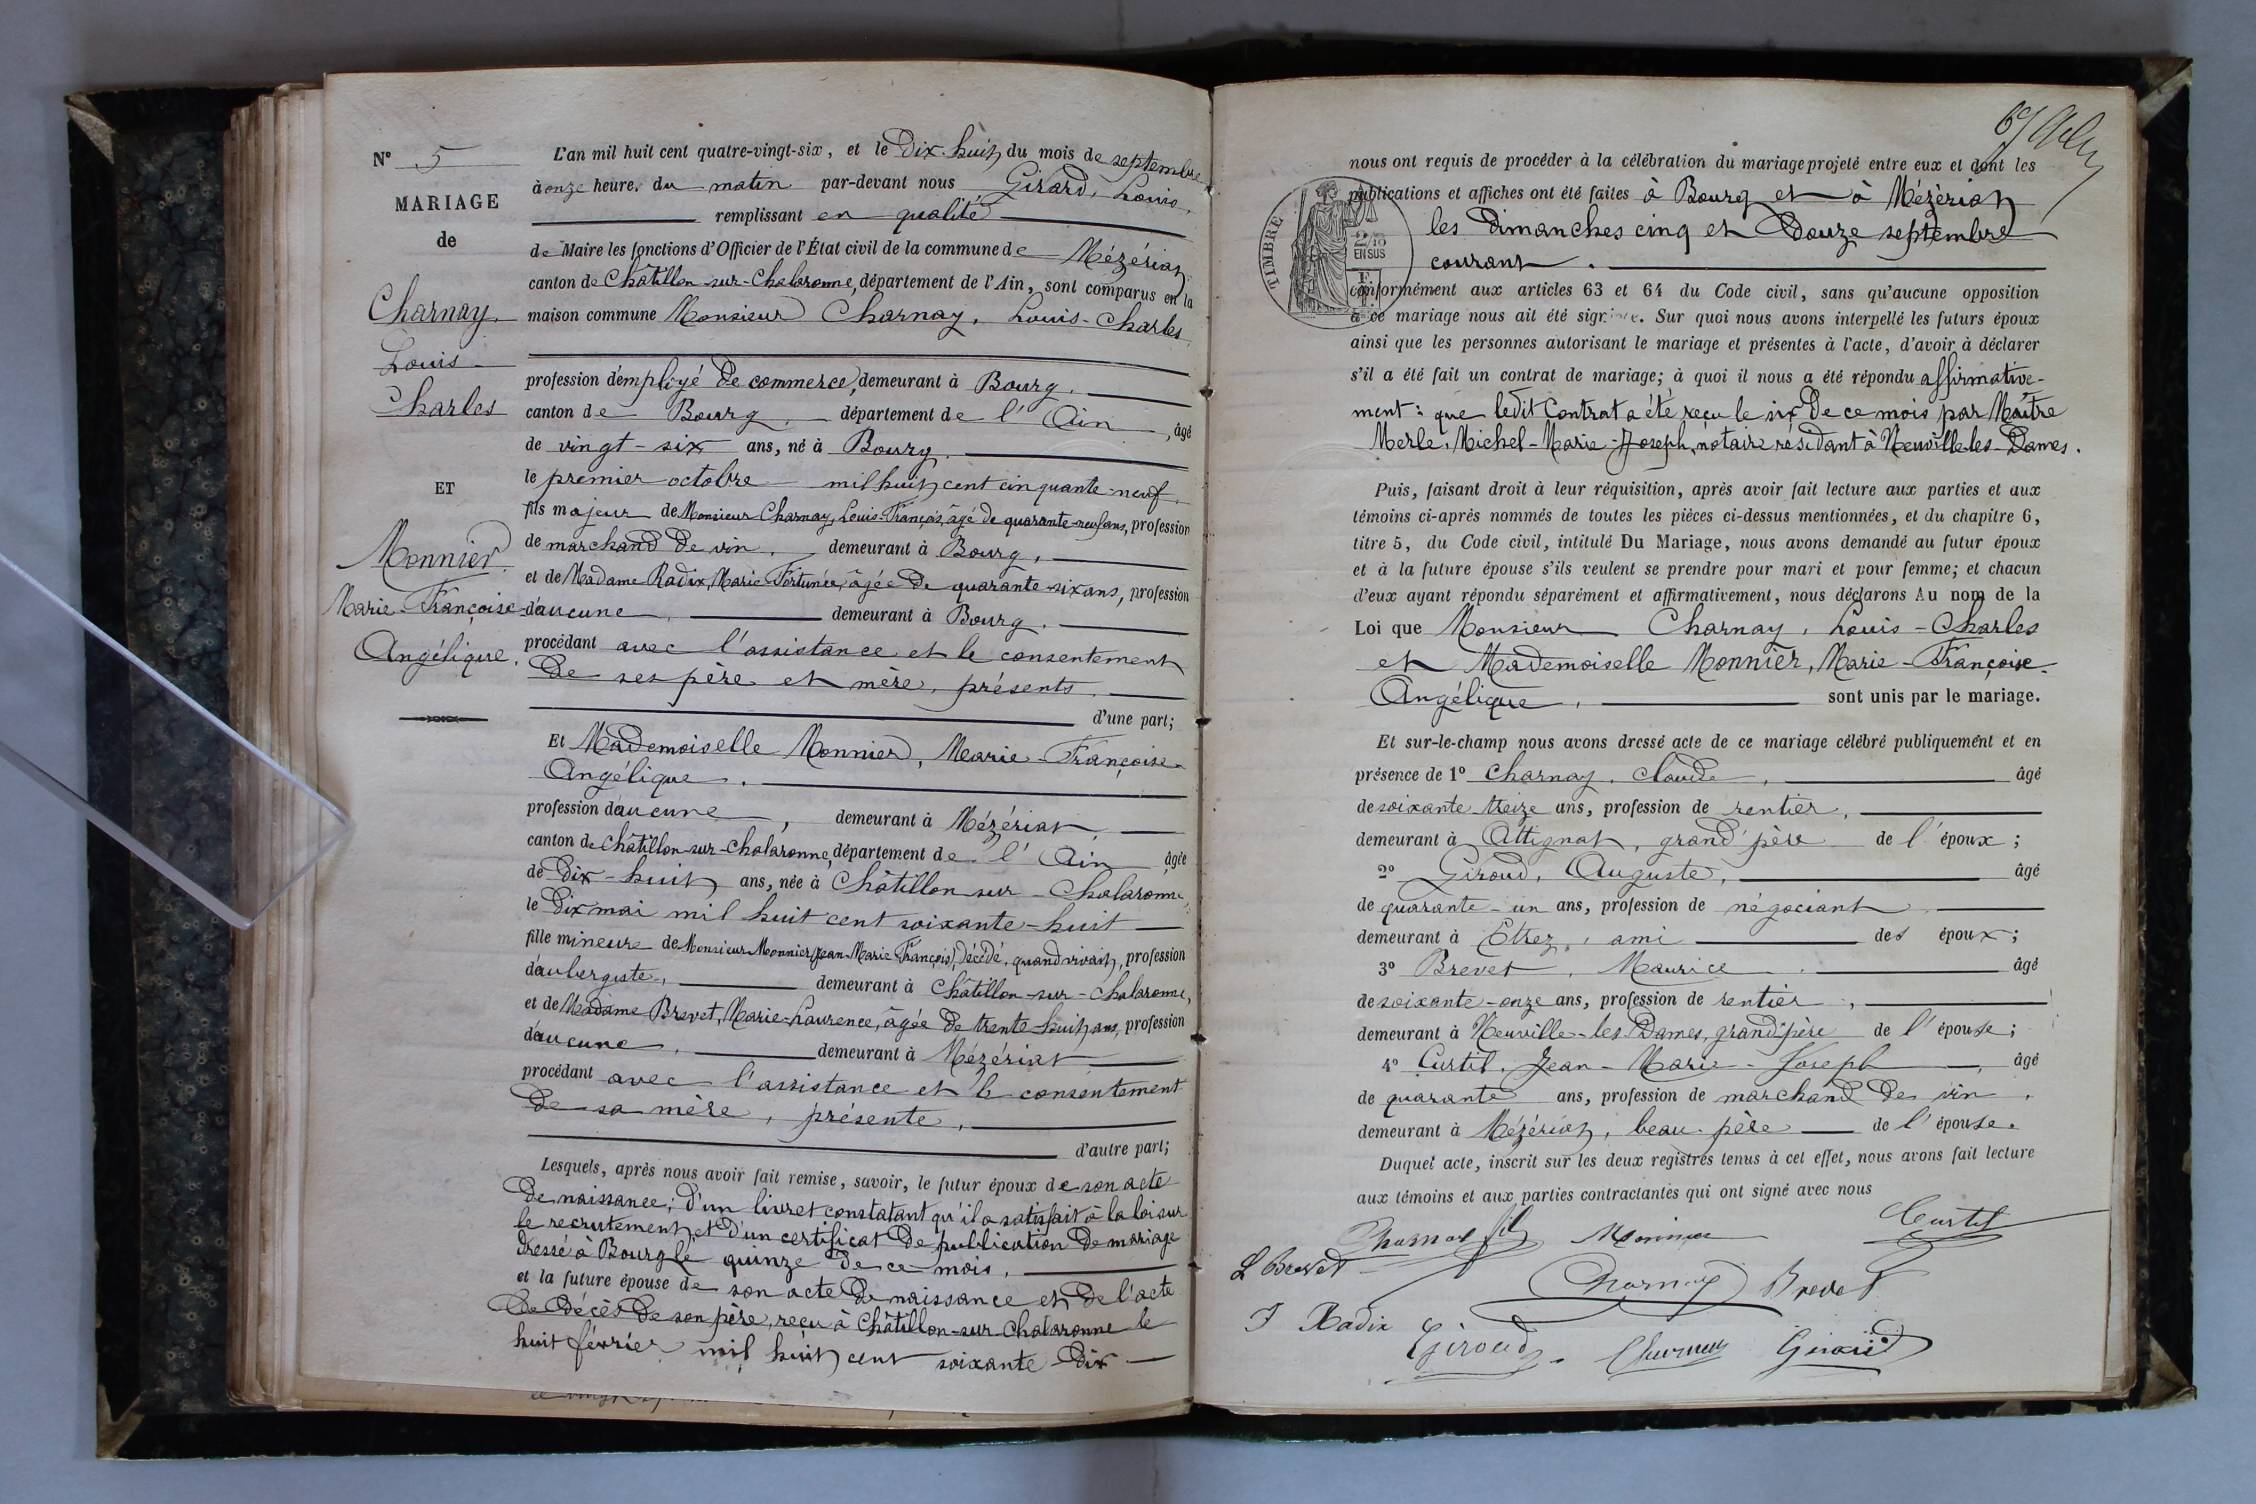 N° 5
MARIAGE
de
Charnay,
Louis-
Charles
ET
Monnier
Marie-Françoise-
Angélique.
L'an mil huit cent quatre-vingt-six, et le Dix-huit du mois de septembre
à onze heure. du matin par-devant nous Girard, Louis,
remplissant en qualité
de Maire les fonctions d'Officier de l'État civil de la commune de Mézériat
canton de Châtillon-sur-Chalaronne, département de l'Ain, sont comparus en la
maison commune Monsieur Charnay, Louis-Charles
profession d'employé de commerce, demeurant à Bourg.
canton de Bourg, département de l'Ain, âgé
de vingt-six ans, né à Bourg.
le premier octobre mil huit cent cinquante-neuf.
fils majeur de Monsieur Charnay, Louis-François, âgé de quarante-neuf ans, profession
de marchand de vin, demeurant à Bourg,
et de Madame Radix, Marie Fortunée, âgée de quarante-six ans, profession
d'aucune, demeurant à Bourg.
procédant avec l'assistance et le consentement
de ses père et mère, présents.
d'une part;
Et Mademoiselle Monnier, Marie-Françoise-
Angélique.
profession d'aucune, demeurant à Mézériat,
canton de Châtillon-sur-Chalaronne, département de l'Ain âgée
de dix-huit ans, née à Châtillon sur-Chalaronne,
le dix mai mil huit cent soixante-huit
fille mineure de Monsieur Monnier (Jean-Marie François), décédé, quand vivait, profession
d'aubergiste, demeurant à Châtillon-sur-Chalaronne,
et de Madame Brevet, Marie-Laurence, âgée de trente-huit ans, profession
d'aucune, demeurant à Mézériat
procédant avec l'assistance et le consentement
de sa mère, présente,
d'autre part;
Lesquels, après nous avoir fait remise, savoir, le futur époux de son acte
de naissance; d'un livret constatant qu'il a satisfait à la loi sur
le recrutement, et d'un certificat de publication de mariage
dressé à Bourg le quinze de ce mois.
et la future épouse de son acte de naissance et de l'acte
de décès de son père, reçu à Châtillon-sur Chalaronne le
huit février mil huit cent soixante-dix
nous ont requis de procéder à la célébration du mariage projeté entre eux et dont les
publications et affiches ont été faites à Bourg et à Mézériat
les dimanches cinq et douze septembre
courant.
TIMBRE
2/10
EN SUS
conformément aux articles 63 et 64 du Code civil, sans qu'aucune opposition
à ce mariage nous ait été signifiée. Sur quoi nous avons interpellé les futurs époux
ainsi que les personnes autorisant le mariage et présentes à l'acte, d'avoir à déclarer
s'il a été fait un contrat de mariage; à quoi il nous a été répondu affirmative-
ment: que ledit Contrat a été reçu le six de ce mois par Maître
Merle, Michel-Marie-Joseph, notaire résidant à Neuville-les-Dames.
Puis, faisant droit à leur réquisition, après avoir fait lecture aux parties et aux
témoins ci-après nommés de toutes les pièces ci-dessus mentionnées, et du chapitre 6,
titre 5, du Code civil, intitulé Du Mariage, nous avons demandé au futur époux
et à la future épouse s'ils veulent se prendre pour mari et pour femme; et chacun
d'eux ayant répondu séparément et affirmativement, nous déclarons Au nom de la
Loi que Monsieur Charnay, Louis-Charles
et Mademoiselle Monnier, Marie-Françoise-
Angélique, sont unis par le mariage.
Et sur-le-champ nous avons dressé acte de ce mariage célébré publiquement et en
présence de 1° Charnay, Claude, âgé
de soixante-treize ans, profession de rentier,
demeurant à Attignat, grand'père de l'époux;
2° Giroud, Auguste, âgé
de quarante-un ans, profession de négociant
demeurant à Etrez, ami des époux;
3° Brevet, Maurice. âgé
de soixante-onze ans, profession de rentier,
demeurant à Neuville-les-Dames, grand'père de l'épouse;
4° Curtil, Jean-Marie-Joseph, âgé
de quarante ans, profession de marchand de vin,
demeurant à Mézériat, beau-père de l'épouse.
Duquel acte, inscrit sur les deux registres tenus à cet effet, nous avons fait lecture
aux témoins et aux parties contractantes qui ont signé avec nous
Charnay fils Monnier Curtil
L Brevet Charnay Brevet
F Radix Giroud Charnay Girard